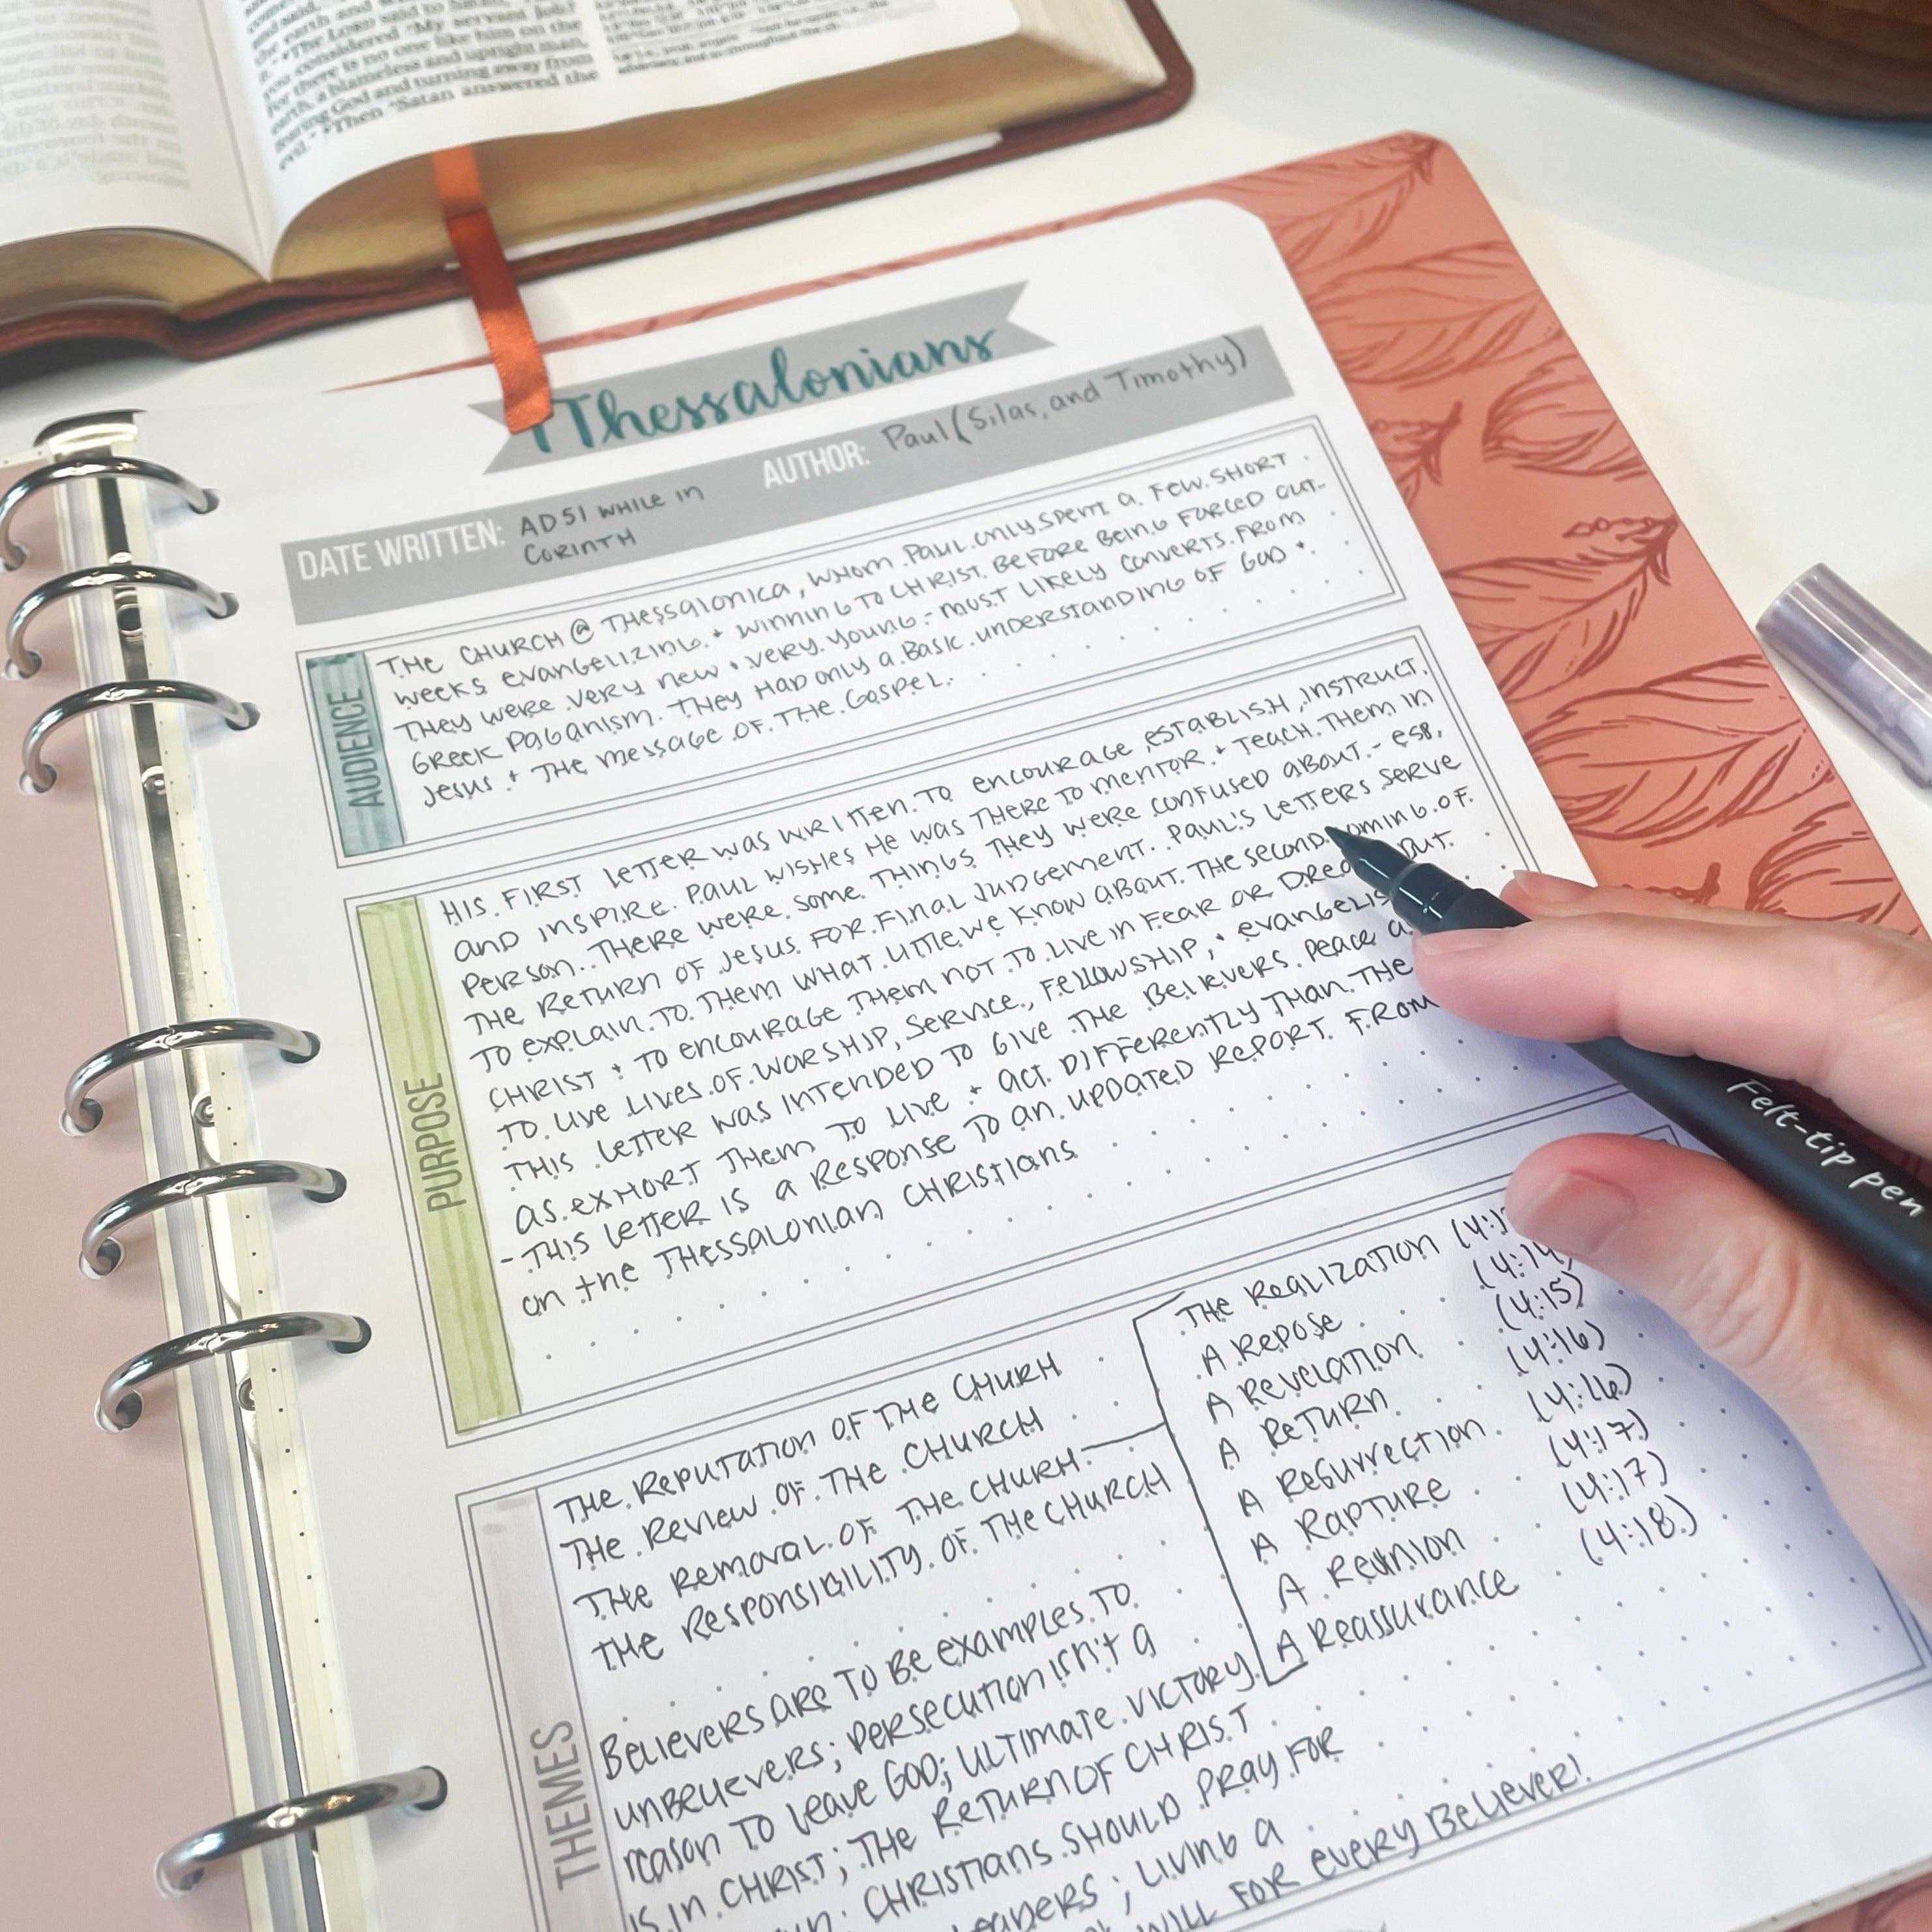 "The LORD said to Satan, "My servant Job?
you considered
for there is no one like him on the
earth, a blameless and upright man,
fearing God and turning away from
evil." Then Satan answered the
1 Thessalonians
DATE WRITTEN: AD 51 WHILE IN
CORINTH
AUTHOR: Paul (Silas, and Timothy)
AUDIENCE
THE CHURCH @ THESSALONICA, WHOM PAUL ONLY SPENT A FEW SHORT
WEEKS EVANGELIZING + WINNING TO CHRIST BEFORE BEING FORCED OUT.
THEY WERE VERY NEW + VERY YOUNG - MOST LIKELY CONVERTS FROM
GREEK PAGANISM. THEY HAD ONLY A BASIC UNDERSTANDING OF GOD +
JESUS + THE MESSAGE OF THE GOSPEL.
PURPOSE
HIS FIRST LETTER WAS WRITTEN TO ENCOURAGE, ESTABLISH, INSTRUCT,
AND INSPIRE. PAUL WISHES HE WAS THERE TO MENTOR + TEACH THEM IN
PERSON. THERE WERE SOME THINGS THEY WERE CONFUSED ABOUT - ESP.
THE RETURN OF JESUS FOR FINAL JUDGEMENT. PAUL'S LETTERS SERVE
TO EXPLAIN TO THEM WHAT LITTLE WE KNOW ABOUT THE SECOND OMING OF
CHRIST + TO ENCOURAGE THEM NOT TO LIVE IN FEAR OR DREA BUT
TO LIVE LIVES OF WORSHIP, SERVICE, FELLOWSHIP, + EVANGELIS
THIS LETTER WAS INTENDED TO GIVE THE BELIEVERS PEACE A
AS EXHORT THEM TO LIVE + ACT DIFFERENTLY THAN THE
- THIS LETTER IS A RESPONSE TO AN UPDATED REPORT FROM
ON THE THESSALONIAN CHRISTIANS
THEMES
THE REPUTATION OF THE CHURH
THE REVIEW OF THE CHURCH
THE REMOVAL OF THE CHURH
THE RESPONSIBILITY OF THE CHURCH
THE REALIZATION (4:1
A REPOSE (4:14)
A REVELATION (4:15)
A RETURN (4:16)
A RESURRECTION (4:16)
A RAPTURE (4:17)
A REUNION (4:17)
A REASSURANCE (4:18)
BELIEVERS ARE TO BE EXAMPLES TO
UNBELIEVERS; PERSECUTION ISN'T A
REASON TO LEAVE GOD; ULTIMATE VICTORY
IS IN CHRIST; THE RETURN OF CHRIST
CHRISTIANS SHOULD PRAY FOR
; LIVING A
WILL FOR EVERY BELIEVER!
Felt-tip pen